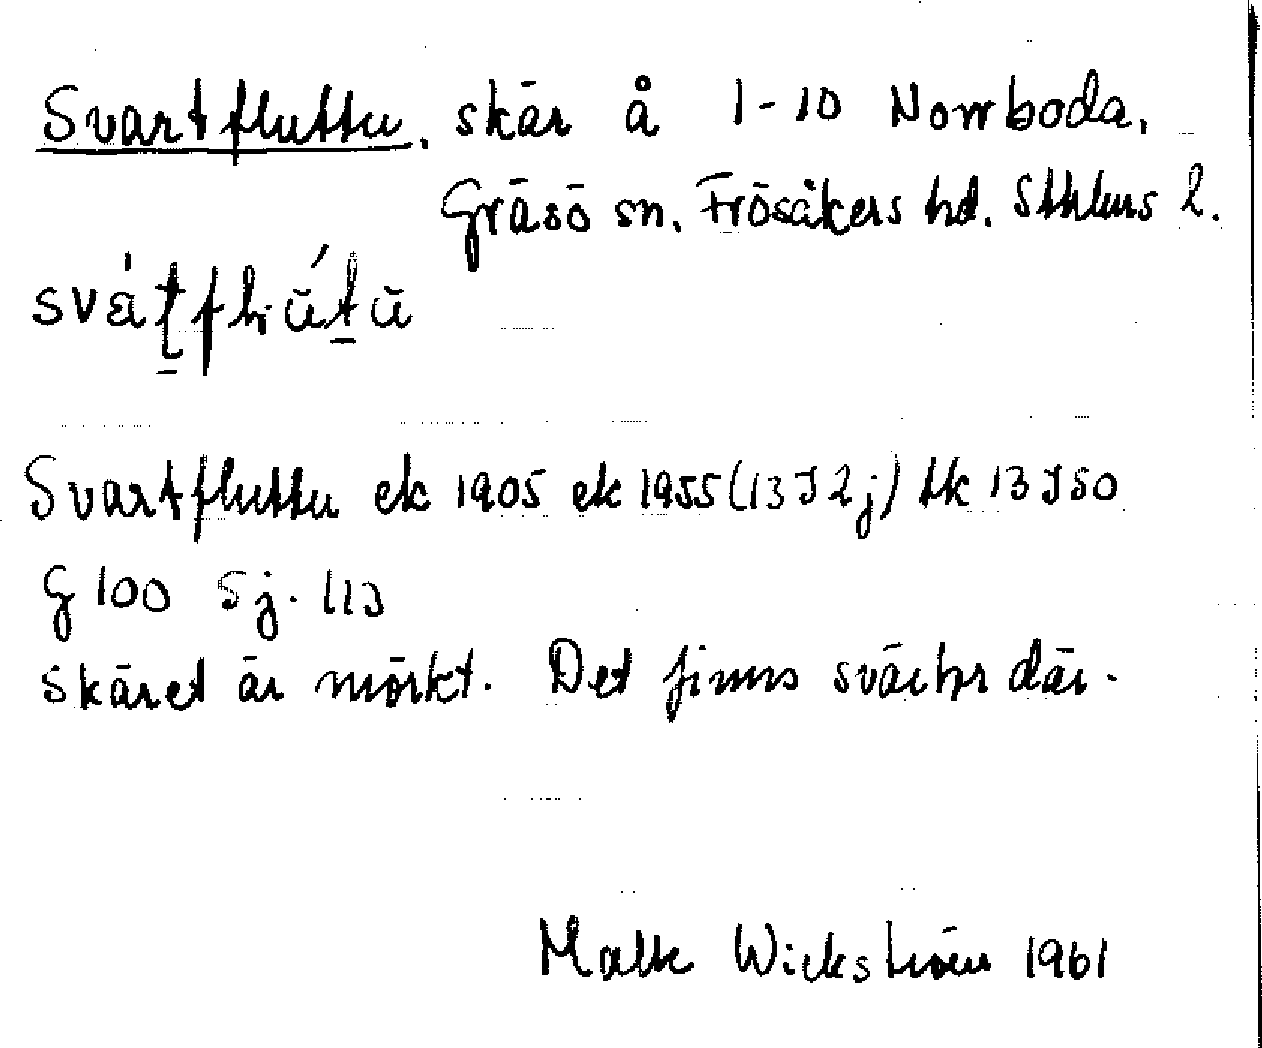 Svartfluttu, skär å 1-10 Norrboda,
Gräsö sn. Frösåkers hd. Sthlms l.
Svartfluttu ek 1905 ek 1955 (13 I 2j) tk 13 I SO
G 100 Sj. 113
Skäret är mörkt. Det finns svärtor där.
Malte Wickström 1961